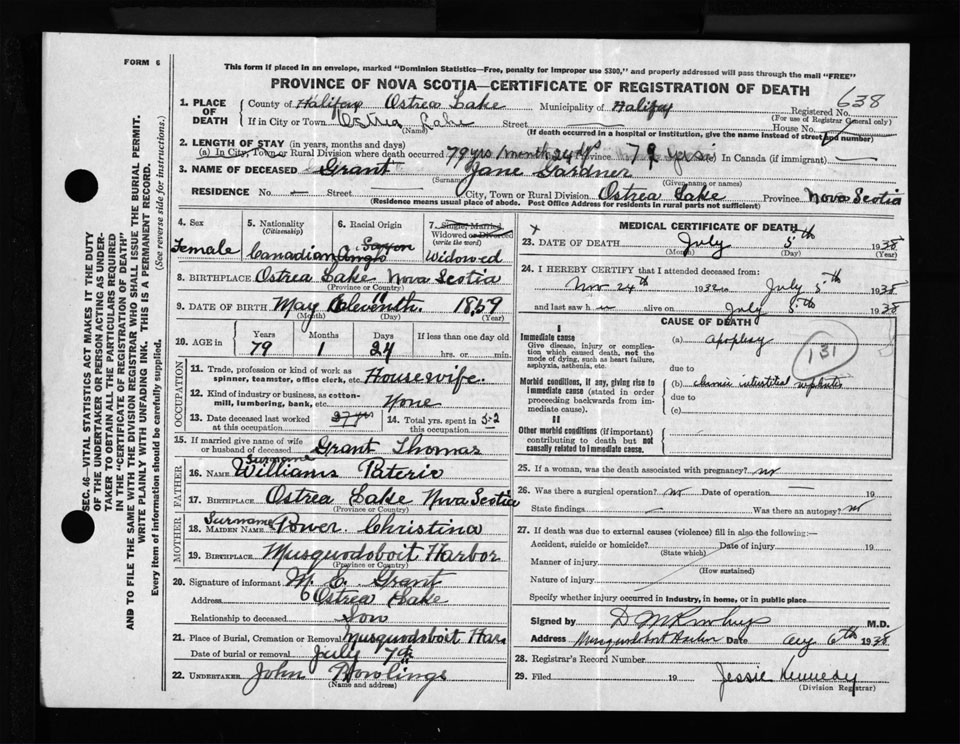 FORM 6
This form if placed in an envelope, marked "Dominion Statistics—Free, penalty for improper use $300," and properly addressed will pass through the mail "FREE"
PROVINCE OF NOVA SCOTIA—CERTIFICATE OF REGISTRATION OF DEATH
SEC. 46—VITAL STATISTICS ACT MAKES IT THE DUTY
OF THE UNDERTAKER OR PERSON ACTING AS UNDER-
TAKER TO OBTAIN ALL THE PARTICULARS REQUIRED
IN THE "CERTIFICATE OF REGISTRATION OF DEATH"
AND TO FILE THE SAME WITH THE DIVISION REGISTRAR WHO SHALL ISSUE THE BURIAL PERMIT.
WRITE PLAINLY WITH UNFADING INK. THIS IS A PERMANENT RECORD.
Every item of information should be carefully supplied.
(See reverse side for instructions.)
1. PLACE OF DEATH
County of Halifax Ostrea Lake Municipality of Halifax Registered No. 638
(For use of Registrar General only)
If in City or Town Ostrea Lake Street House No.
(Name) (If death occurred in a hospital or institution, give the name instead of street and number)
2. LENGTH OF STAY (in years, months and days)
(a) In City, Town or Rural Division where death occurred 79 yrs 1 month 24 dys Province 79 yrs In Canada (if immigrant) —
3. NAME OF DECEASED Grant Jane Gardner
(Surname) (Given name or names)
RESIDENCE No. — Street City, Town or Rural Division Ostrea Lake Province Nova Scotia
(Residence means usual place of abode. Post Office Address for residents in rural parts not sufficient)
4. Sex 5. Nationality 6. Racial Origin 7. Single, Married,
(Citizenship) Widowed or Divorced
(write the word)
Female Canadian Anglo Saxon Widowed
8. BIRTHPLACE Ostrea Lake Nova Scotia
(Province or Country)
9. DATE OF BIRTH May 11 Eleventh. 1859
(Month) (Day) (Year)
10. AGE Years Months Days If less than one day old
79 1 24 hrs. or min.
OCCUPATION
11. Trade, profession or kind of work as
spinner, teamster, office clerk, etc. Housewife.
12. Kind of industry or business, as cotton-
mill, lumbering, bank, etc. None
13. Date deceased last worked 14. Total yrs. spent in 52
at this occupation this occupation
15. If married give name of wife
or husband of deceased Grant Thomas
FATHER
Surname
16. NAME Williams
17. BIRTHPLACE Ostrea Lake Nova Scotia
(Province or Country)
MOTHER
Surname
18. MAIDEN NAME Power Christina
19. BIRTHPLACE Musquodoboit Harbor
(Province or Country)
20. Signature of informant M. E. Grant
Address Ostrea Lake
Relationship to deceased Son
21. Place of Burial, Cremation or Removal Musquodoboit Har
Date of burial or removal July 7th
22. UNDERTAKER John Rowlings
(Name and address)
MEDICAL CERTIFICATE OF DEATH
X
23. DATE OF DEATH July 5th 1938
(Month) (Day) (Year)
24. I HEREBY CERTIFY that I attended deceased from:
Nov 24th 193 to July 5th 1938
and last saw h alive on July 5th 1938
CAUSE OF DEATH
I
Immediate cause
Give disease, injury or complica-
tion which caused death, not the
mode of dying, such as heart failure,
asphyxia, asthenia, etc.
(a) apoplexy
131
due to
Morbid conditions, if any, giving rise to
immediate cause (stated in order
proceeding backwards from im-
mediate cause).
(b) chronic interstitial nephritis
due to
(c)
II
Other morbid conditions (if important)
contributing to death but not
causally related to immediate cause.
25. If a woman, was the death associated with pregnancy? no
26. Was there a surgical operation? no Date of operation — 19
State findings Was there an autopsy? no
27. If death was due to external causes (violence) fill in also the following:—
Accident, suicide or homicide? Date of injury 19
(State which)
Manner of injury
(How sustained)
Nature of injury
Specify whether injury occurred in industry, in home, or in public place
Signed by M.D.
Address Musquodoboit Harbor Date 6th 1938
28. Registrar's Record Number
29. Filed 19 Jessie Kennedy
(Division Registrar)